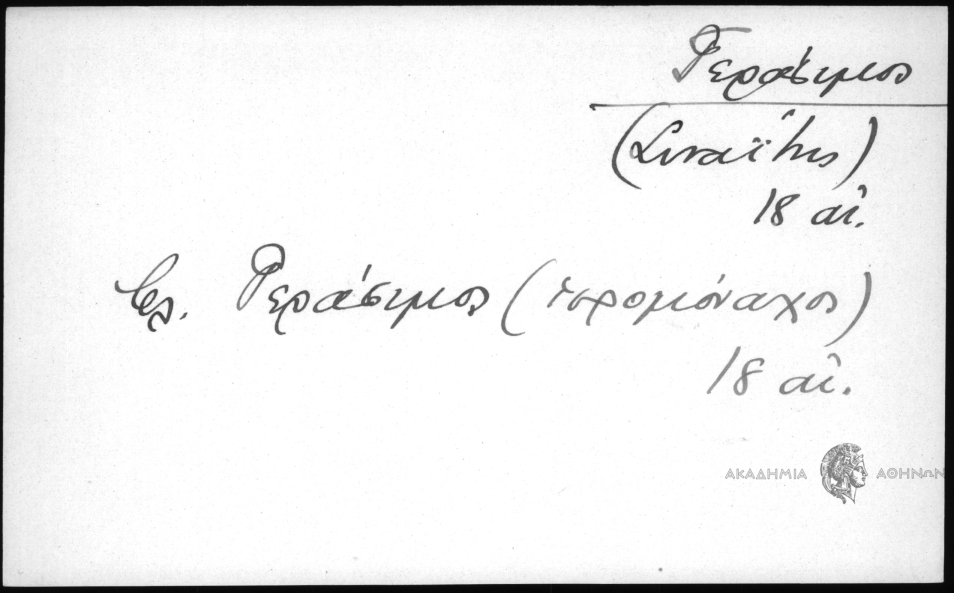 Γεράσιμος
(Σιναΐτης)
18 αἰ.
βλ. Γεράσιμος (ἱερομόναχος)
18 αἰ.
ΑΚΑΔΗΜΙΑ ΑΘΗΝΩΝ